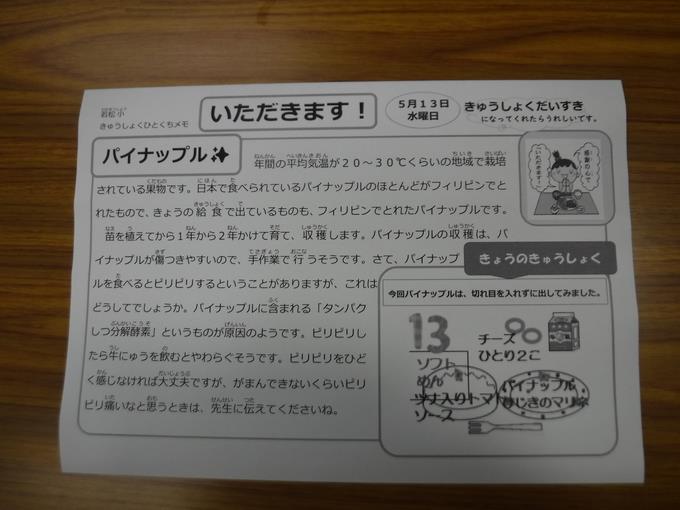 若松小
きゅうしょくひとくちメモ
いただきます！
5月13日
水曜日
きゅうしょくだいすき
になってくれたらうれしいです。
パイナップル
年間の平均気温が20～30℃くらいの地域で栽培
されている果物です。日本で食べられているパイナップルのほとんどがフィリピンでと
れたもので、きょうの給食で出ているものも、フィリピンでとれたパイナップルです。
苗を植えてから1年から2年かけて育て、収穫します。パイナップルの収穫は、パ
イナップルが傷つきやすいので、手作業で行うそうです。さて、パイナップ
ルを食べるとピリピリするということがありますが、これは
どうしてでしょうか。パイナップルに含まれる「タンパク
しつ分解酵素」というものが原因のようです。ピリピリし
たら牛にゅうを飲むとやわらぐそうです。ピリピリをひど
く感じなければ大丈夫ですが、がまんできないくらいピリ
ピリ痛いなと思うときは、先生に伝えてくださいね。
感謝の心で
いただきます！
きょうのきゅうしょく
今回パイナップルは、切れ目を入れずに出してみました。
13
チーズ
ひとり2こ
ソフト
めん
ツナ入りトマト
ソース
パイナップル
ひじきのマリネ